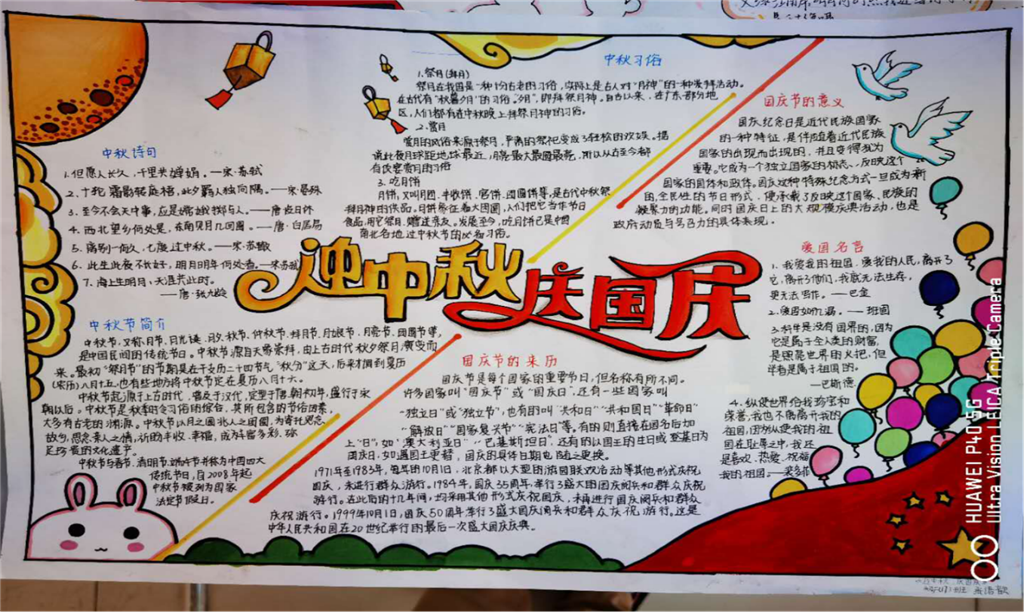 中秋诗句
1.但愿人长久，千里共婵娟。—宋·苏轼
2.十轮霜影转庭梧，此夕羁人独向隅。—宋·晏殊
3.至今不会天中事，应是嫦娥掷与人。——唐·皮日休
4.西北望乡何处是，东南见月几回圆。——唐·白居易
6.此生此夜不长好，明月明年何处看。—宋·苏轼
7.海上生明月，天涯共此时。
——唐·张九龄
中秋节简介
中秋节，又称月节
是中国民间的传统节日。中秋节源自天象崇拜，由上古时代秋夕祭月演变而
来。最初“祭月节”的节期是在干支历二十四节气“秋分”这天，后来才调到夏历
(农历)八月十五，也有些地方将中秋节定在夏历八月十六。
中秋节起源于上古时代，普及于汉代，定型于唐朝初年，盛行于宋
朝以后。中秋节是秋季时令习俗的综合，其所包含的节俗因素，
大多有古老的渊源。中秋节以月之圆兆人之团圆，为寄托思念
故乡，思念亲人之情，祈盼丰收、幸福，成为丰富多彩、弥
足珍贵的文化遗产。
中秋节与春节、清明节、端午节并称为中国四大
传统节日，自2008年起
中秋节被列为国家
法定节假日。
中秋习俗
1.祭月(拜月)
祭月在我国是一种十分古老的习俗，实际上是古人对“月神”的一种崇拜活动。
在古代有“秋暮夕月”的习俗。夕月，即拜祭月神。自古以来，在广东部分地
区，人们都有在中秋晚上拜祭月神的习俗。
2.赏月
赏月的风俗来源于祭月，严肃的祭祀变成了轻松的欢娱。据
说此夜月球距地球最近，月亮最大最圆最亮，所以从古至今都
有饮宴赏月的习俗
3.吃月饼
月饼，又叫月团、丰收饼、宫饼、团圆饼等，是古代中秋祭
拜月神的供品。月饼象征着大团圆，人们把它当作节日
食品，用它祭月、赠送亲友。发展至今，吃月饼已是中国
南北各地过中秋节的必备习俗。
迎中秋
庆国庆
国庆节的意义
国庆纪念日是近代民族国家
的一种特征，是伴随着近代民族
国家的出现而出现的，并且变得尤为
重要。它成为一个独立国家的标志，反映这个
国家的国体和政体。国庆这种特殊纪念方式一旦成为新
的、全民性的节日形式，便承载了反映这个国家、民族的
凝聚力的功能。同时国庆日上的大规模庆典活动，也是
政府动员与号召力的具体表现。
爱国名言
1.我爱我的祖国，爱我的人民，离开了
它，离开了他们，我就无法生存，
更无法写作。—巴金
2.爱国如饥渴。—班固
3.科学是没有国界的，因为
它是属于全人类的财富，
是照亮世界的火把，但
学者是属于祖国的。
—巴斯德
4.纵使世界给我珍宝和
荣誉，我也不愿离开我的
祖国，因为纵使我的祖
国在耻辱之中，我还
是喜欢、热爱、祝福
我的祖国。
国庆节的来历
国庆节是每个国家的重要节日，但名称有所不同。
许多国家叫“国庆节”或“国庆日”，还有一些国家叫
“独立日”或“独立节”，也有的叫“共和日”“共和国日”“革命日”
“解放日”“国家复兴节”“宪法日”等，有的则直接在国名后加
上“日”，如“澳大利亚日”“巴基斯坦日”，还有的以国王的生日或登基日为
国庆日，如遇国王更替，国庆的具体日期也随之更换。
1971年至1983年，每年的10月1日，北京都以大型的游园联欢活动等其他形式庆祝
国庆，未进行群众游行。1984年，国庆35周年，举行了盛大的国庆阅兵和群众庆祝
游行。在此后的十几年间，均采用其他形式庆祝国庆，未再进行国庆阅兵和群众
庆祝游行。1999年10月1日，国庆50周年举行了盛大国庆阅兵和群众庆祝游行。这是
中华人民共和国在20世纪举行的最后一次盛大国庆庆典。
HUAWEI P40 5G
Ultra Vision | LEICA Triple Camera